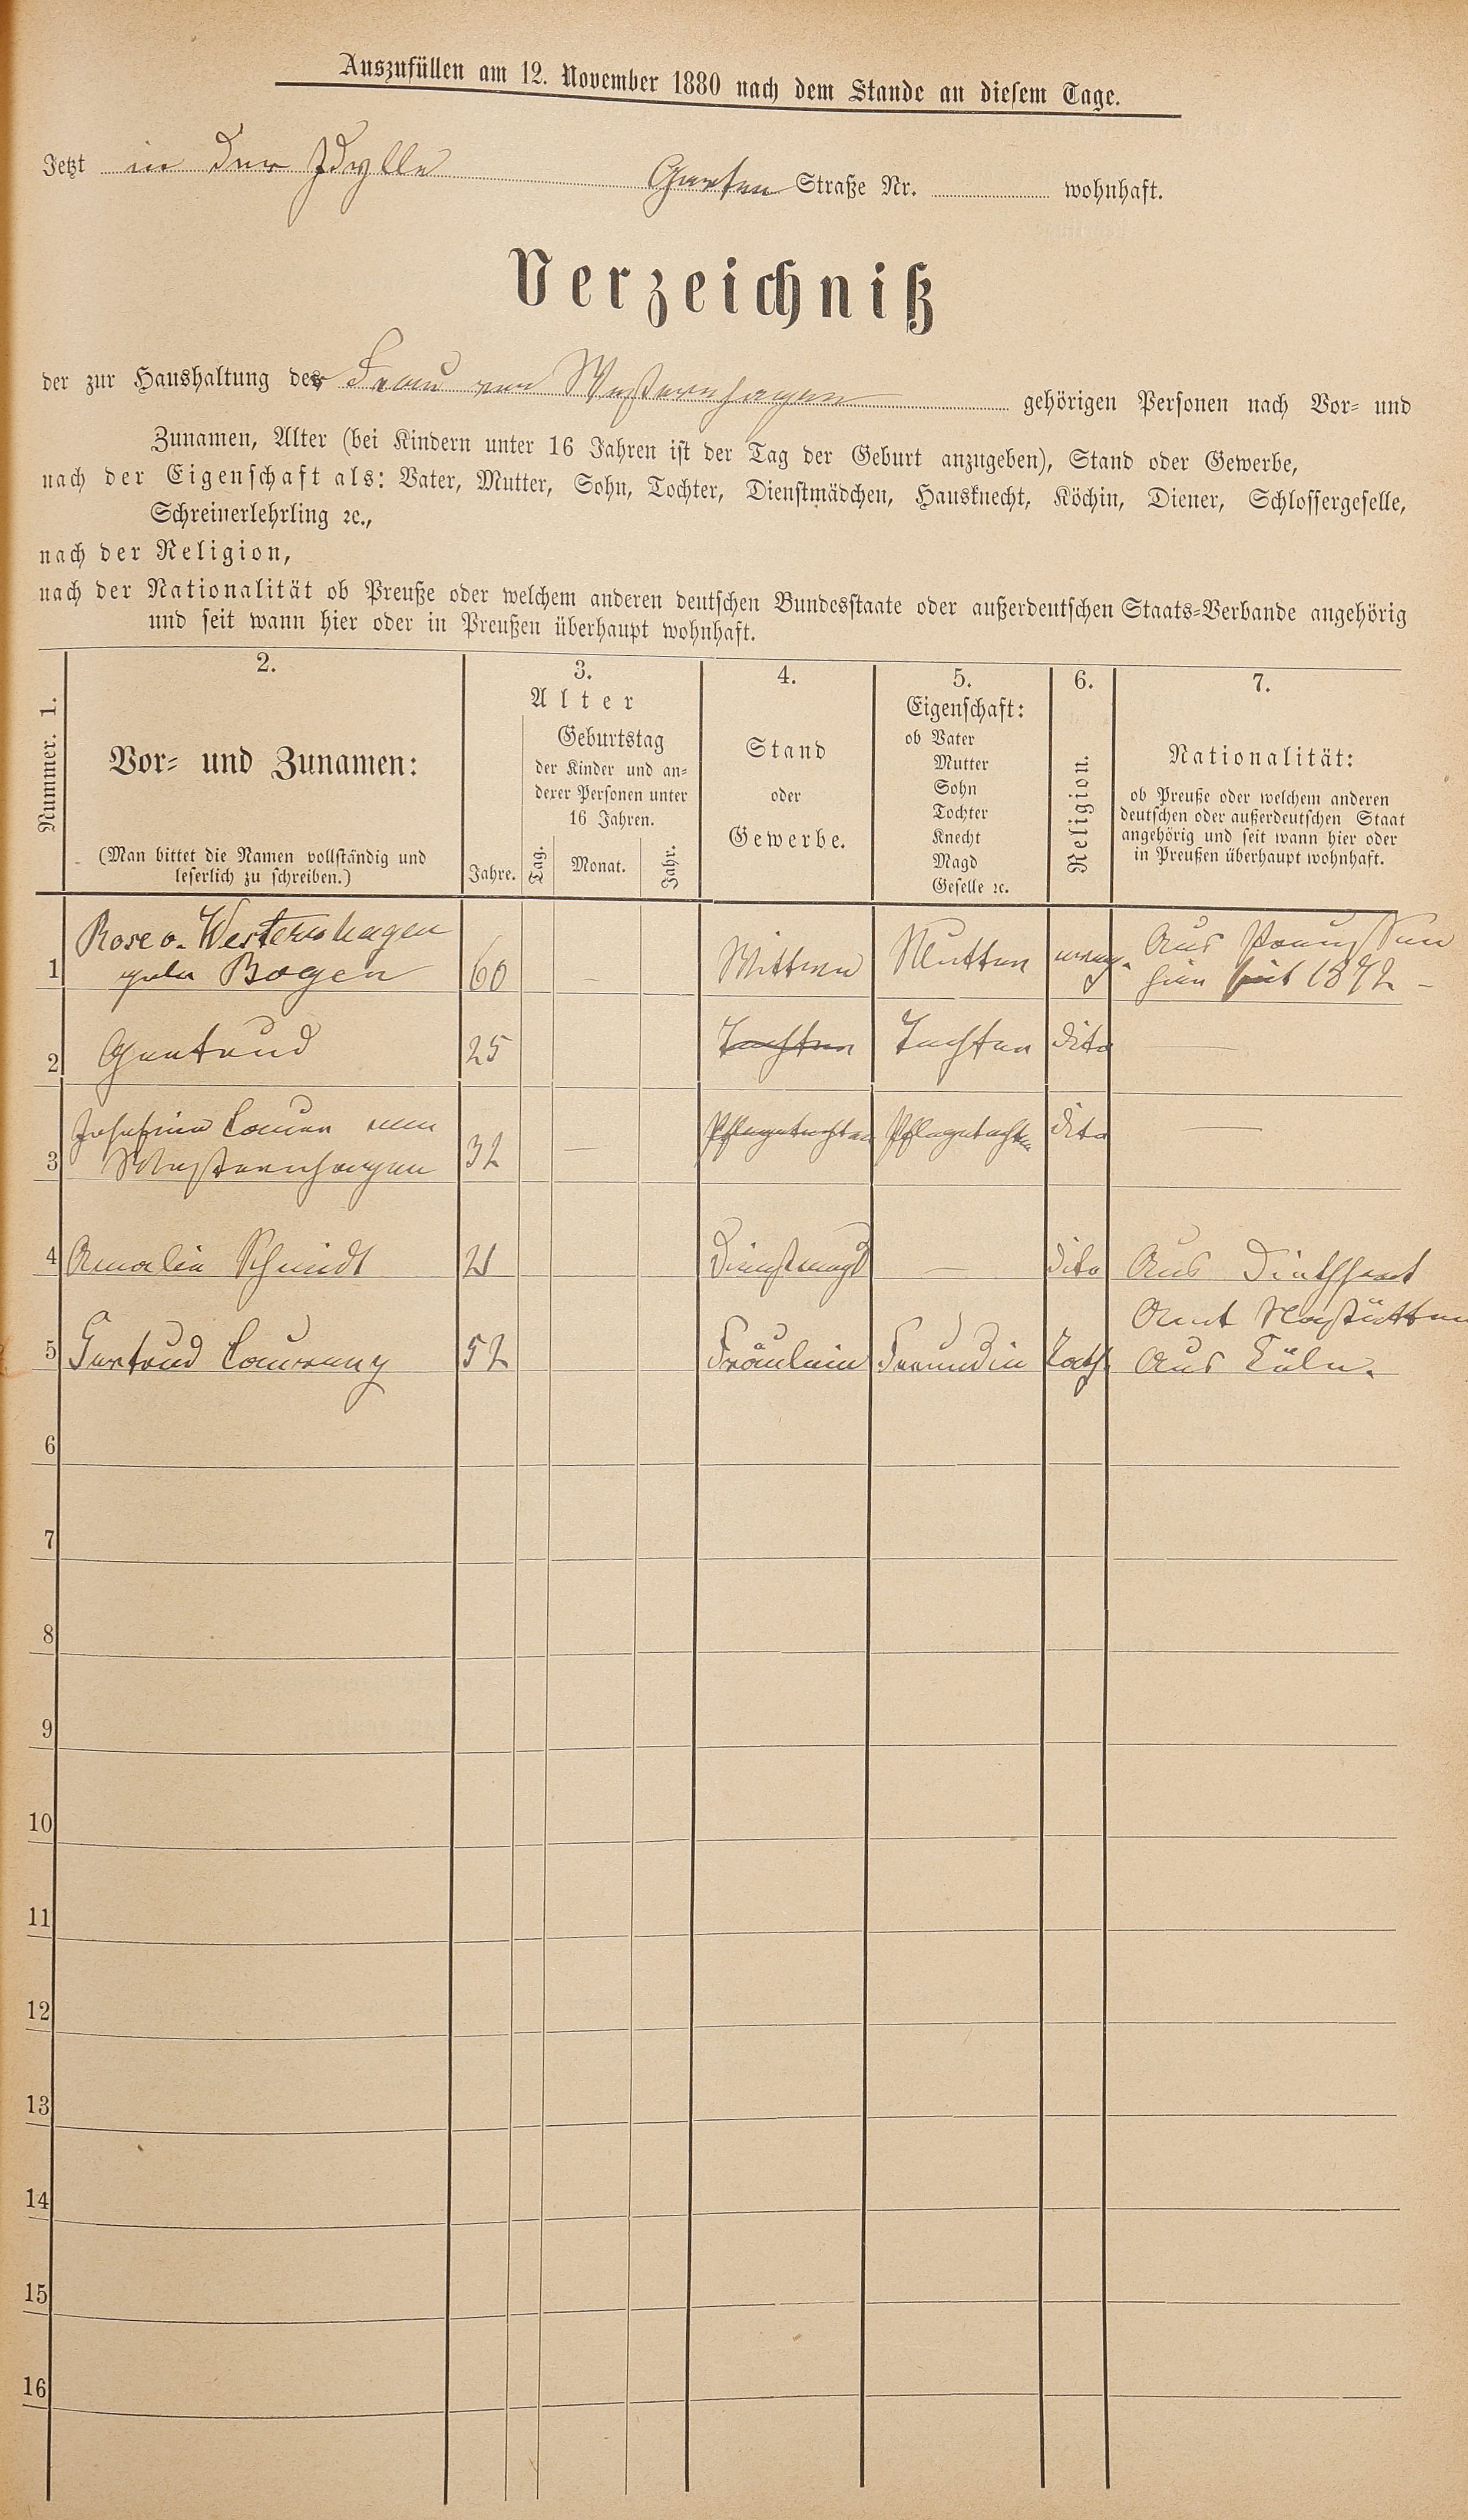 Auszufüllen am 12. November 1880 nach dem Stande an diesem Tage.
Jetzt in der Idylle Garten Straße Nr. wohnhaft.
Verzeichniß
der zur Haushaltung der Frau von Westernhagen gehörigen Personen nach Vor- und
Zunamen, Alter (bei Kindern unter 16 Jahren ist der Tag der Geburt anzugeben), Stand oder Gewerbe,
nach der Eigenschaft als: Vater, Mutter, Sohn, Tochter, Dienstmädchen, Hausknecht, Köchin, Diener, Schlossergeselle,
Schreinerlehrling ꝛc.,
nach der Religion,
nach der Nationalität ob Preuße oder welchem anderen deutschen Bundesstaate oder außerdeutschen Staats-Verbande angehörig
und seit wann hier oder in Preußen überhaupt wohnhaft.
Nummer. 1.
2.
Vor- und Zunamen:
(Man bittet die Namen vollständig und
leserlich zu schreiben.)
3.
Alter
Jahre.
Geburtstag
der Kinder und an-
derer Personen unter
16 Jahren.
Tag. Monat. Jahr.
4.
Stand
oder
Gewerbe.
5.
Eigenschaft:
ob Vater
Mutter
Sohn
Tochter
Knecht
Magd
Geselle ꝛc.
6.
Religion.
7.
Nationalität:
ob Preuße oder welchem anderen
deutschen oder außerdeutschen Staat
angehörig und seit wann hier oder
in Preußen überhaupt wohnhaft.
Rose v. Westernhagen Aus Preussen
1 geb Bogen 60 — Wittwe Mutter evang. hier seit 1872 —
2 Gertrud 25 Tochter Tochter dito —
von
3 Westernhagen 32 — Pflegetochter Pflegetochter dito —
4 Amalie Schmidt 21 Dienstmagd — dito Aus
Amt Nastätten
5 Gertrud 52 Fräulein Freundin Kath. Aus Cöln.
6
7
8
9
10
11
12
13
14
15
16